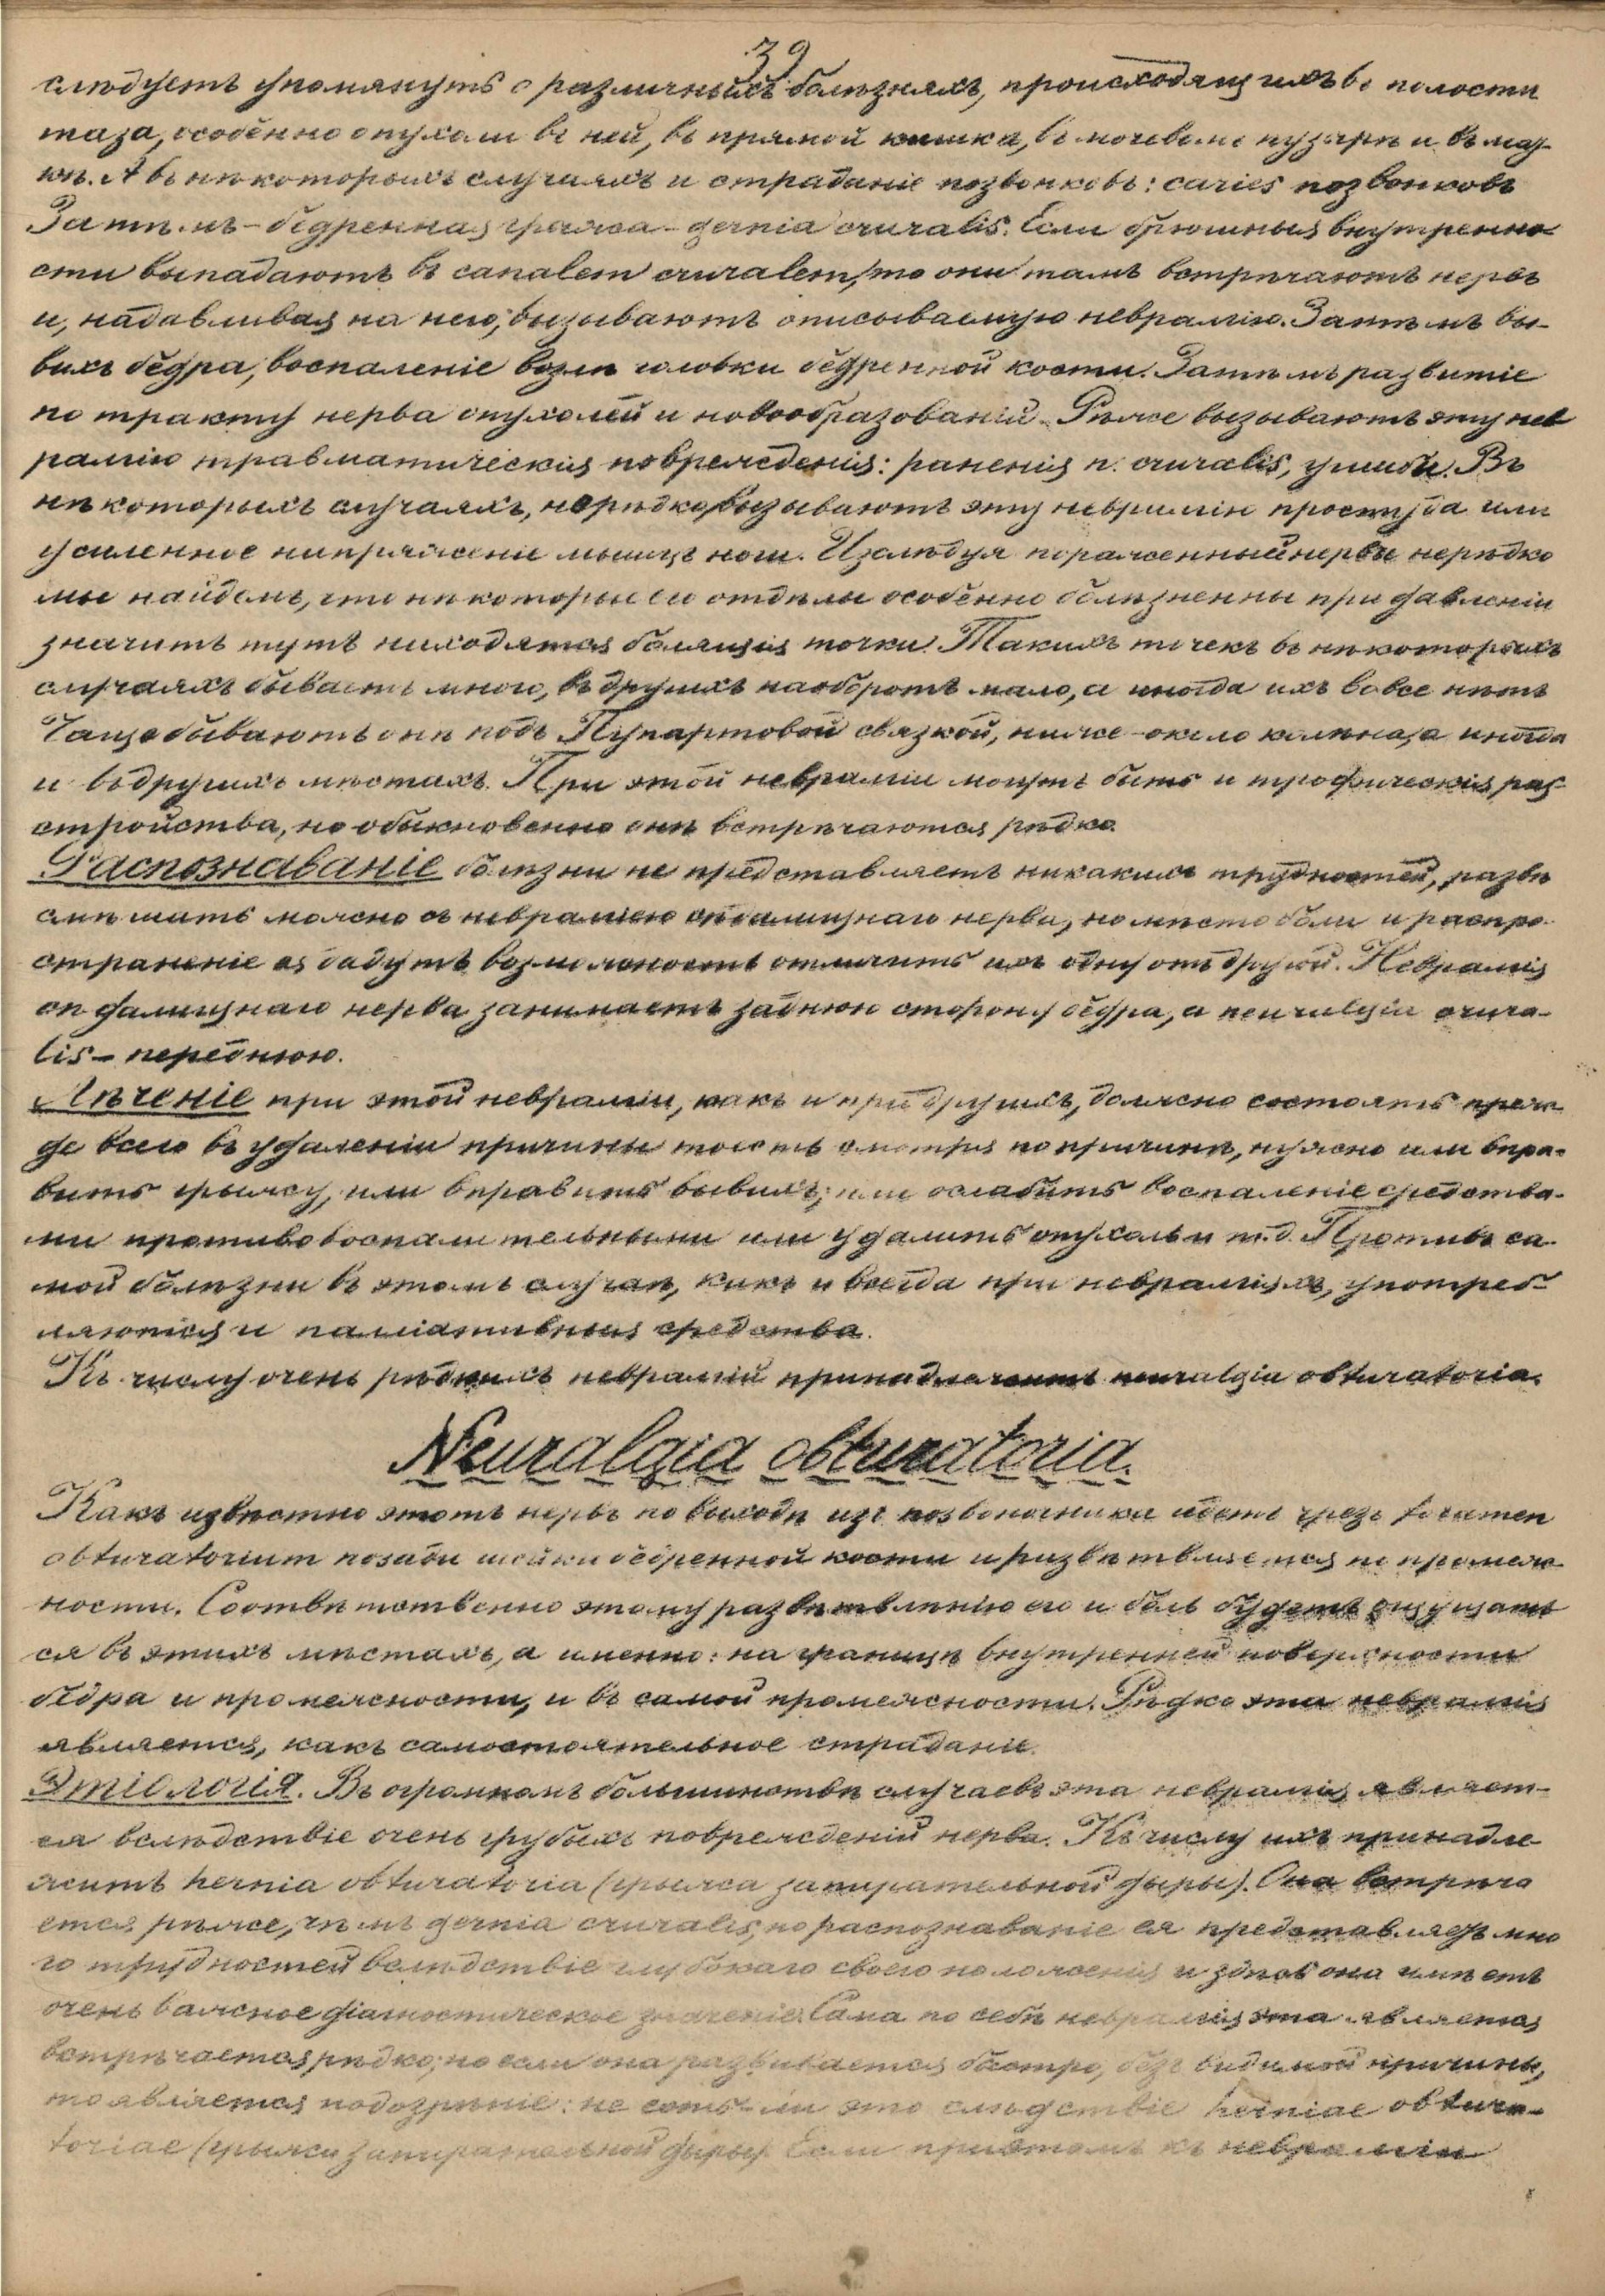 39
слѣдуетъ упомянуть о различныхъ болѣзняхъ, происходящихъ въ полости
таза, особенно опухоли въ ней, въ прямой кишкѣ, въ мочевомъ пузырѣ и въ мат-
кѣ. А въ нѣкоторыхъ случаяхъ и страданіе позвонковъ: caries позвонковъ
Затѣмъ - бедренная грыжа - gernia cruralis. Если брюшныя внутренно-
сти выпадаютъ въ canalem cruralem, то они тамъ встрѣчаютъ нервъ
и, надавливая на него, вызываютъ описываемую невралгію. Затѣмъ вы-
вихъ бедра, воспаленіе возлѣ головки бедренной кости. Затѣмъ развитіе
по тракту нерва опухолей и новообразованій. Рѣже вызываютъ эту нев
ралгію травматическія поврежденія: раненія n. cruralis, ушибы. Въ
нѣкоторыхъ случаяхъ, нерѣдко, вызываютъ эту невралгію простуда или
усиленное напряженіе мышцъ ногъ. Изслѣдуя пораженный нервъ нерѣдко
мы найдемъ, что нѣкоторые его отдѣлы особенно болѣзненны при давленіи
значитъ тутъ находятся болящія точки. Такихъ точекъ въ нѣкоторыхъ
случаяхъ бываетъ много, въ другихъ наоборотъ мало, а иногда ихъ вовсе нѣтъ
Чаще бываютъ онѣ подъ Пупартовой связкой, ниже - около колѣна, а иногда
и въ другихъ мѣстахъ. При этой невралгіи могутъ быть и трофическія раз-
стройства, но обыкновенно онѣ встрѣчаются рѣдко.
Распознаваніе болѣзни не представляетъ никакихъ трудностей, развѣ
смѣшать можно съ невралгіею сѣдалищнаго нерва, но мѣсто боли и распро-
страненіе ея дадутъ возможность отличить ихъ одну отъ другой. Невралгія
сѣдалищнаго нерва занимаетъ заднюю сторону бедра, а neuralgia crura-
lis - переднюю.
Лѣченіе при этой невралгіи, какъ и при другихъ, должно состоять преж-
де всего въ удаленіи причины тоесть смотря по причинѣ, нужно или впра-
вить грыжу, или вправить вывихъ, или ослабить воспаленіе средства-
ми противовоспалительными или удалить опухоль и т.д. Противъ са-
мой болѣзни въ этомъ случаѣ, какъ и всегда при невралгіяхъ, употреб-
ляются и палліативныя средства.
Къ числу очень рѣдкихъ невралгій принадлежитъ neuralgia obturatoria.
Neuralgia obturatoria.
Какъ извѣстно этотъ нервъ по выходѣ изъ позвоночника идетъ чрезъ foramen
obturatorium позади шейки бедренной кости и развѣтвляется въ промеж-
ности. Соотвѣтственно этому развѣтвленію его и боль будетъ ощущать
ся въ этихъ мѣстахъ, а именно: на границѣ внутренней поверхности
бедра и промежности, и въ самой промежности. Рѣдко эта невралгія
является, какъ самостоятельное страданіе.
Этіологія. Въ огромномъ большинствѣ случаевъ эта невралгія являет-
ся вслѣдствіе очень грубыхъ поврежденій нерва. Къ числу ихъ принадле-
житъ hernia obturatoria (грыжа запирательной дыры). Она встрѣча
ется рѣже, чѣмъ gernia cruralis, но распознаваніе ея представляетъ мно
го трудностей вслѣдствіе глубокаго своего положенія и здѣсь она имѣетъ
очень важное діагностическое значеніе. Сама по себѣ невралгія эта является
встрѣчается рѣдко; но если она развивается быстро, безъ видимой причины,
то является подозрѣніе: не есть-ли это слѣдствіе herniae obtura-
toriae (грыжи запирательной дыры). Если приэтомъ къ невралгіи